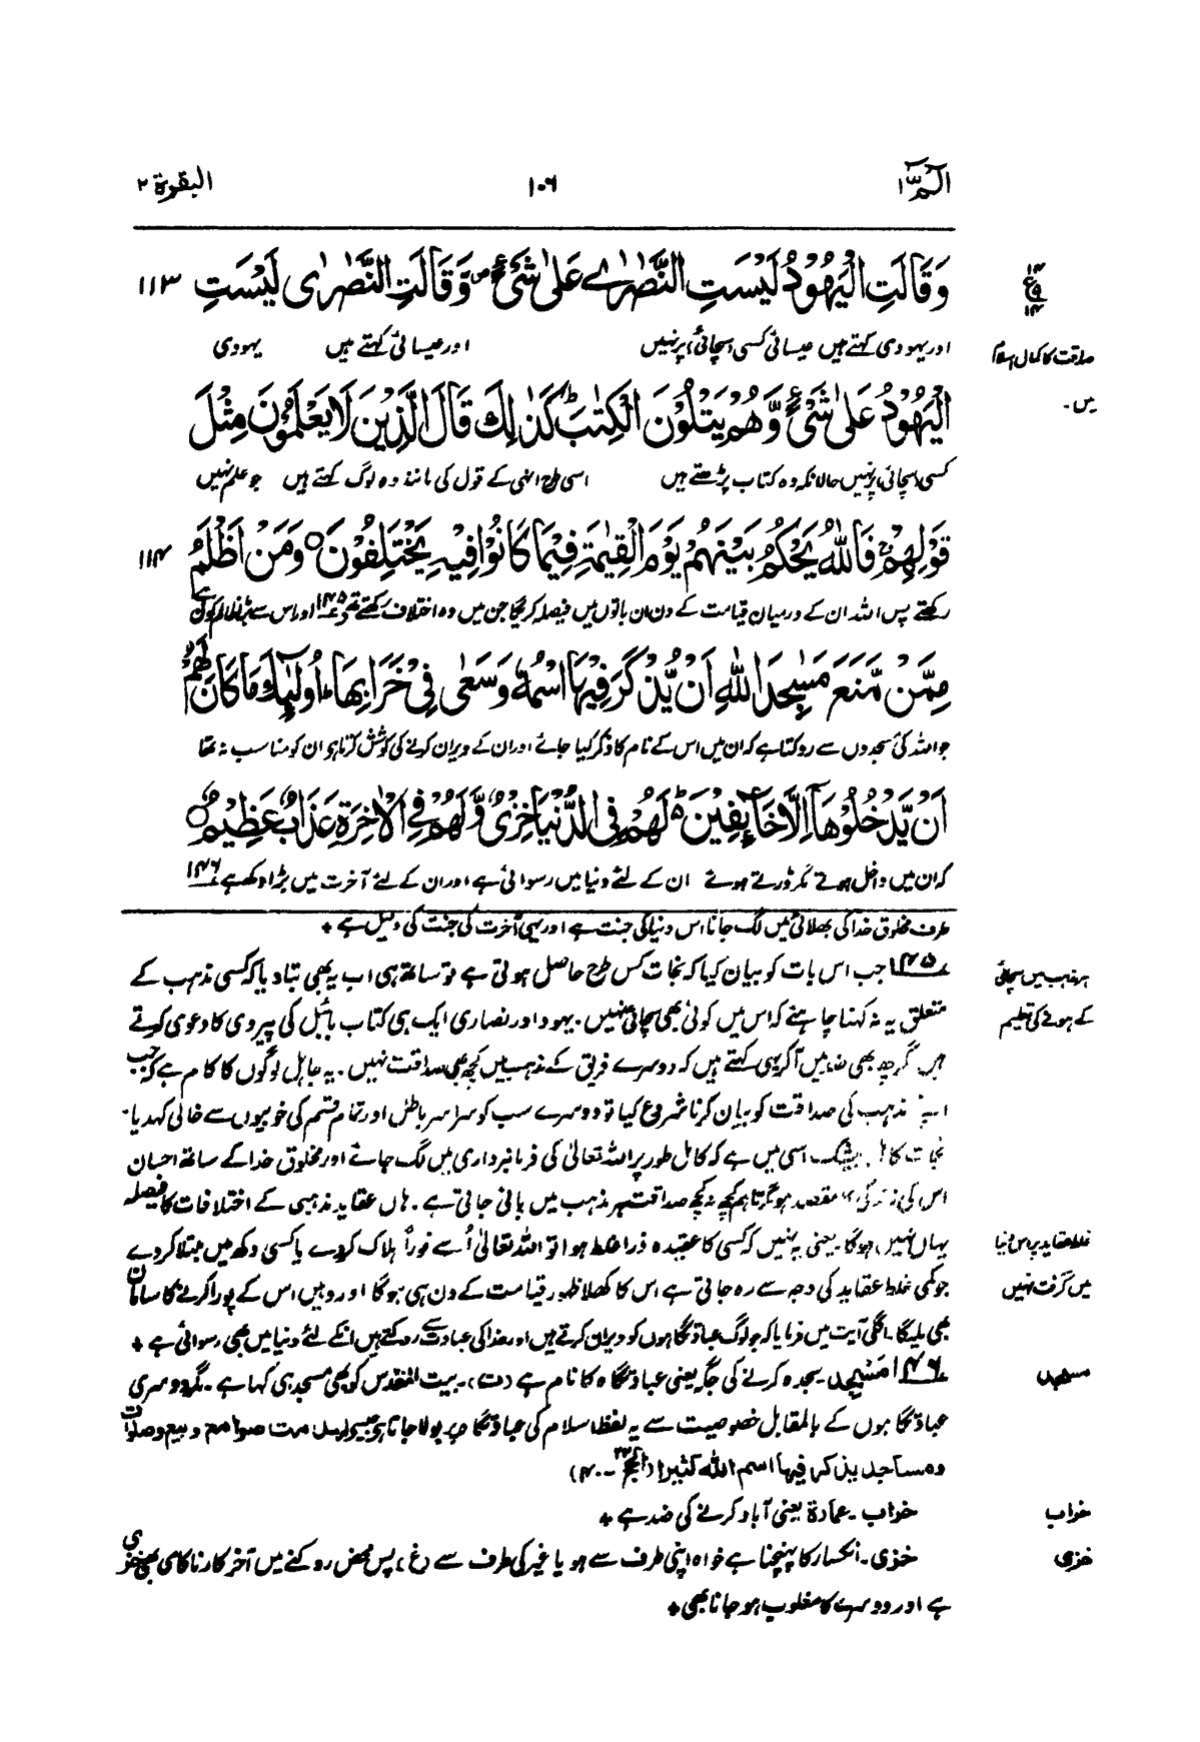 الٓمّٓ ١
١٠٦
البقرة ٢
وَقَالَتِ الْيَهُوْدُ لَيْسَتِ النَّصٰرٰے عَلٰى شَيْءٍ ۪ وَّقَالَتِ النَّصٰرٰى لَيْسَتِ ١١٣
اور یہودی کہتے ہیں عیسائی کسی سچائی پر نہیں اور عیسائی کہتے ہیں یہودی
صداقت کا کمال اسلام
میں۔
الْيَهُوْدُ عَلٰى شَيْءٍ ۙ وَّهُمْ يَتْلُوْنَ الْكِتٰبَ ؕ كَذٰلِكَ قَالَ الَّذِيْنَ لَا يَعْلَمُوْنَ مِثْلَ
کسی سچائی پر نہیں حالانکہ وہ کتاب پڑھتے ہیں اسی طرح انہی کے قول کی مانند وہ لوگ کہتے ہیں جو علم نہیں
قَوْلِهِمْ ۚ فَاللّٰهُ يَحْكُمُ بَيْنَهُمْ يَوْمَ الْقِيٰمَةِ فِيْمَا كَانُوْا فِيْهِ يَخْتَلِفُوْنَ ○ وَمَنْ اَظْلَمُ ١١٤
رکھتے پس اللہ ان کے درمیان قیامت کے دن ان باتوں میں فیصلہ کریگا جن میں وہ اختلاف رکھتے تھے ١٤٥ اور اس سے بڑا ظالم کون ہے
مِمَّنْ مَّنَعَ مَسٰجِدَ اللّٰهِ اَنْ يُّذْكَرَ فِيْهَا اسْمُهٗ وَسَعٰى فِيْ خَرَابِهَا ؕ اُولٰٓئِكَ مَا كَانَ لَهُمْ
جو اللہ کی مسجدوں سے روکتا ہے کہ ان میں اس کے نام کا ذکر کیا جائے اور ان کے ویران کرنے کی کوشش کرتا ہو ان کو مناسب نہ تھا
اَنْ يَّدْخُلُوْهَآ اِلَّا خَآئِفِيْنَ ؕ لَهُمْ فِى الدُّنْيَا خِزْىٌ وَّلَهُمْ فِى الْاٰخِرَةِ عَذَابٌ عَظِيْمٌ ○
کہ ان میں داخل ہوتے مگر ڈرتے ہوئے ان کے لئے دنیا میں رسوائی ہے اور ان کے لئے آخرت میں بڑا دکھ ہے ١٤٦
طرف مخلوق خدا کی بھلائی میں لگ جانا اس دنیا کی جنت ہے اور یہی آخرت کی جنت کی دلیل ہے +
١٤٥ جب اس بات کو بیان کیا کہ نجات کس طرح حاصل ہوتی ہے تو ساتھ ہی اب یہ بھی بتا دیا کہ کسی مذہب کے
ہر مذہب میں سچائی
متعلق یہ نہ کہنا چاہئے کہ اس میں کوئی بھی سچائی نہیں۔ یہود اور نصاریٰ ایک ہی کتاب بائبل کی پیروی کا دعویٰ کرتے
کے ہونے کی تعلیم
ہیں مگر پھر بھی ضد میں آ کر یہی کہتے ہیں کہ دوسرے فریق کے مذہب میں کچھ بھی صداقت نہیں۔ یہ جاہل لوگوں کا کام ہے کہ جب
اپنے مذہب کی صداقت کو بیان کرنا شروع کیا تو دوسرے سب کو سراسر باطل اور تمام قسم کی خوبیوں سے خالی کہدیا۔
نجات کامل بیشک اسی میں ہے کہ کامل طور پر اللہ تعالیٰ کی فرمانبرداری میں لگ جائے اور مخلوق خدا کے ساتھ احسان
اس کی زندگی کا مقصد ہو مگر تاہم کچھ نہ کچھ صداقت ہر مذہب میں پائی جاتی ہے۔ ہاں عقاید مذہبی کے اختلافات کا فیصلہ
یہاں نہیں ہوگا یعنی یہ نہیں کہ کسی کا عقیدہ ذرا غلط ہوا تو اللہ تعالیٰ اُسے فوراً ہلاک کردے یا کسی دکھ میں مبتلا کردے
غلط عقاید پر اس دنیا
جو کمی غلط عقاید کی وجہ سے رہ جاتی ہے اس کا کھلا ظہور قیامت کے دن ہی ہوگا اور وہیں اس کے پورا کرنے کا سامان
میں گرفت نہیں
بھی ملیگا۔ اگلی آیت میں فرمایا کہ جو لوگ عبادتگاہوں کو ویران کرتے ہیں اور خدا کی عبادت سے روکتے ہیں انکے لئے دنیا میں بھی رسوائی ہے +
١٤٦ مَسْجِد سجدہ کرنے کی جگہ یعنی عبادتگاہ کا نام ہے (ت)۔ بیت المقدس کو بھی مسجد ہی کہا ہے۔ مگر دوسری
مسجد
عبادتگاہوں کے بالمقابل خصوصیت سے یہ لفظ اسلام کی عبادتگاہ پر بولا جاتا ہے جیسے لهدمت صوامع وبيع وصلوات
ومساجد يذكر فيها اسم الله كثيرا (الحج ٢٢-٤٠)
خراب۔ عمارۃ یعنی آباد کرنے کی ضد ہے +
خراب
خزی۔ انکسار کا پہنچنا ہے خواہ اپنی طرف سے ہو یا غیر کی طرف سے (غ) پس محض روکنے میں آخر کار ناکامی بھی خزی
خزی
ہے اور دوسرے کا مغلوب ہو جانا بھی +